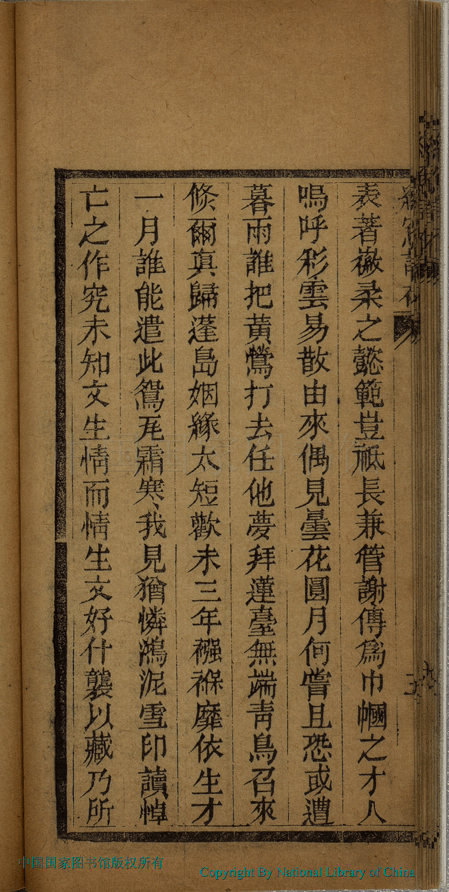 表著徽柔之懿範豈祗長兼管謝傳爲巾幗之才人
嗚呼彩雲易散由來偶見曇花圓月何嘗且恐或遭
暮雨誰把黃鶯打去任他夢拜蓮臺無端靑鳥召來
倐爾真歸蓬島姻緣太短歡未三年襁褓靡依生才
一月誰能遣此鴛瓦霜寒我見猶憐鴻泥雪印讀悼
亡之作究未知文生情而情生文好什襲以藏乃所
中国国家图书馆版权所有
Copyright By National Library of China